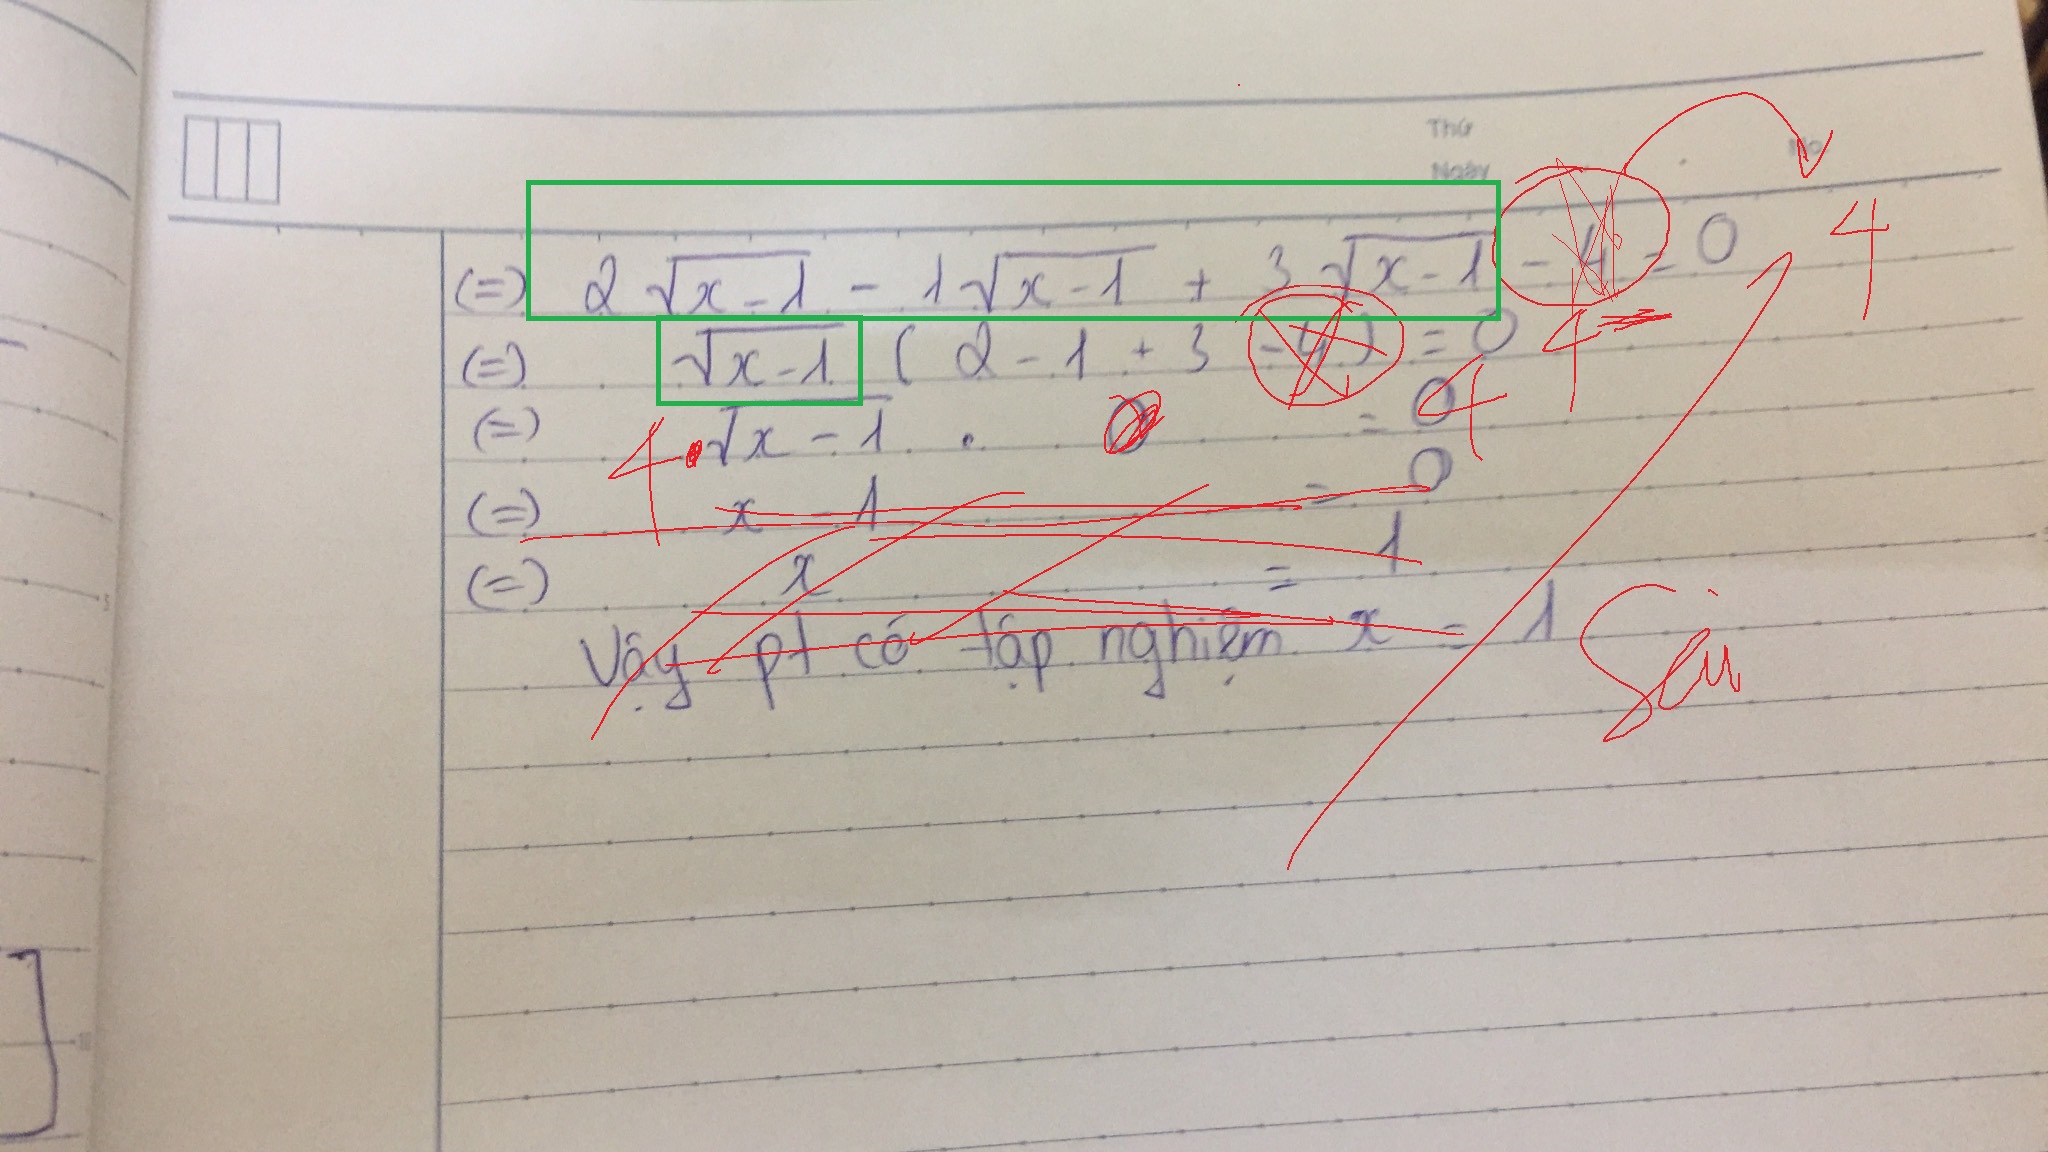 Thứ
Ngày
No.
(=) 2√x-1 - 1√x-1 + 3√x-1 - 4 = 0 4
(=) √x-1 ( 2 - 1 + 3 - 4 ) = 0 4
(=) 4.√x-1 . 0 = 0 4
(=) x - 1 = 0
(=) x = 1
Vậy pt có tập nghiệm x = 1